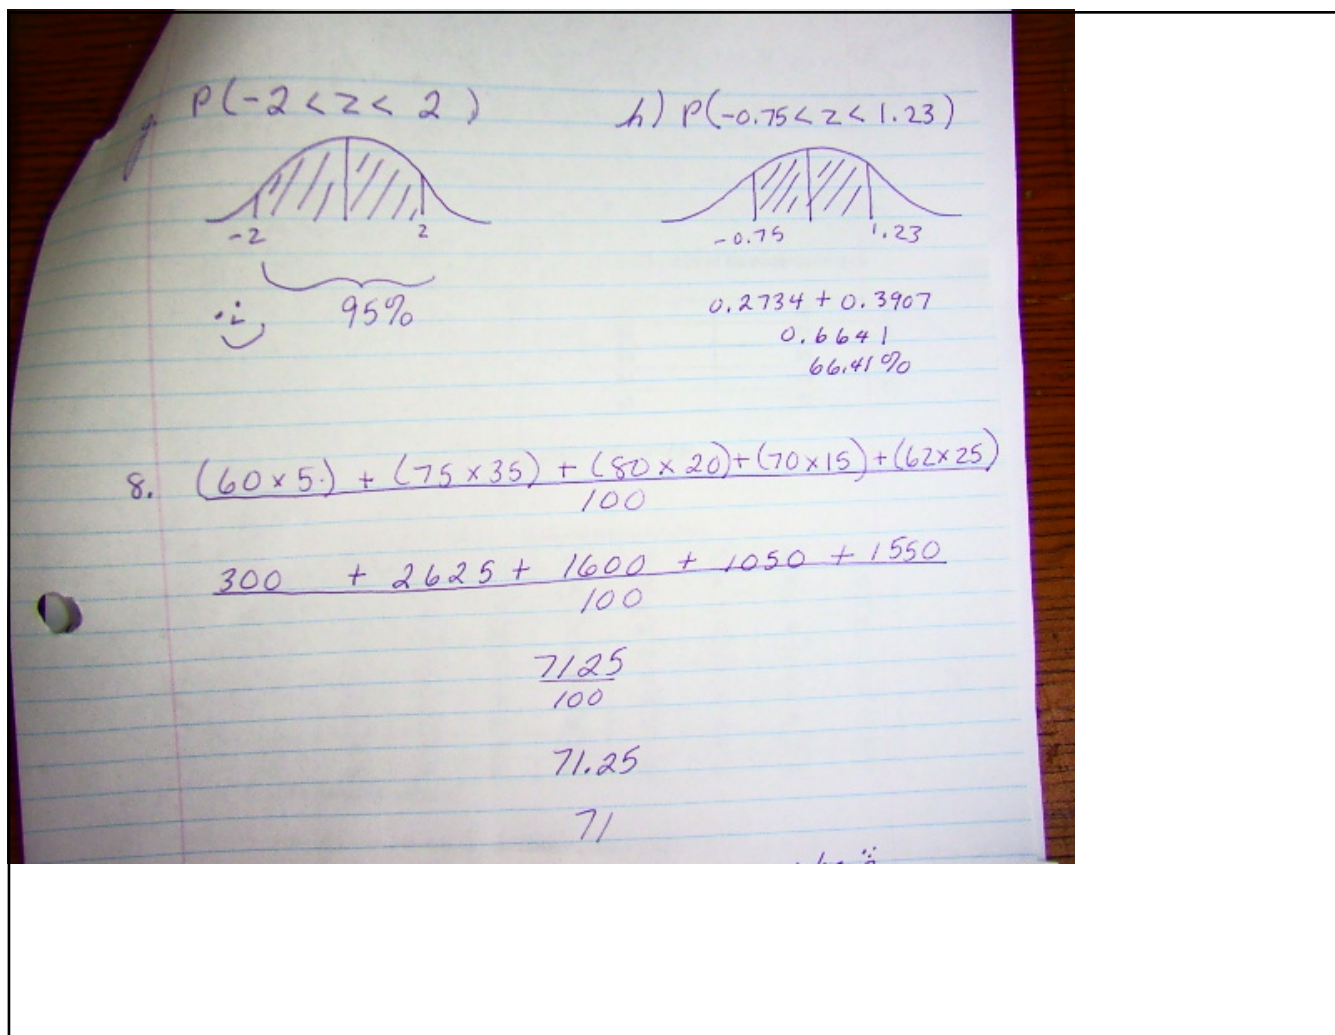 g P(-2 < z < 2)
-2 2
95%
h) P(-0.75 < z < 1.23)
-0.75 1.23
0.2734 + 0.3907
0.6641
66.41%
8. (60 x 5.) + (75 x 35) + (80 x 20) + (70 x 15) + (62 x 25)
100
300 + 2625 + 1600 + 1050 + 1550
100
7125
100
71.25
71